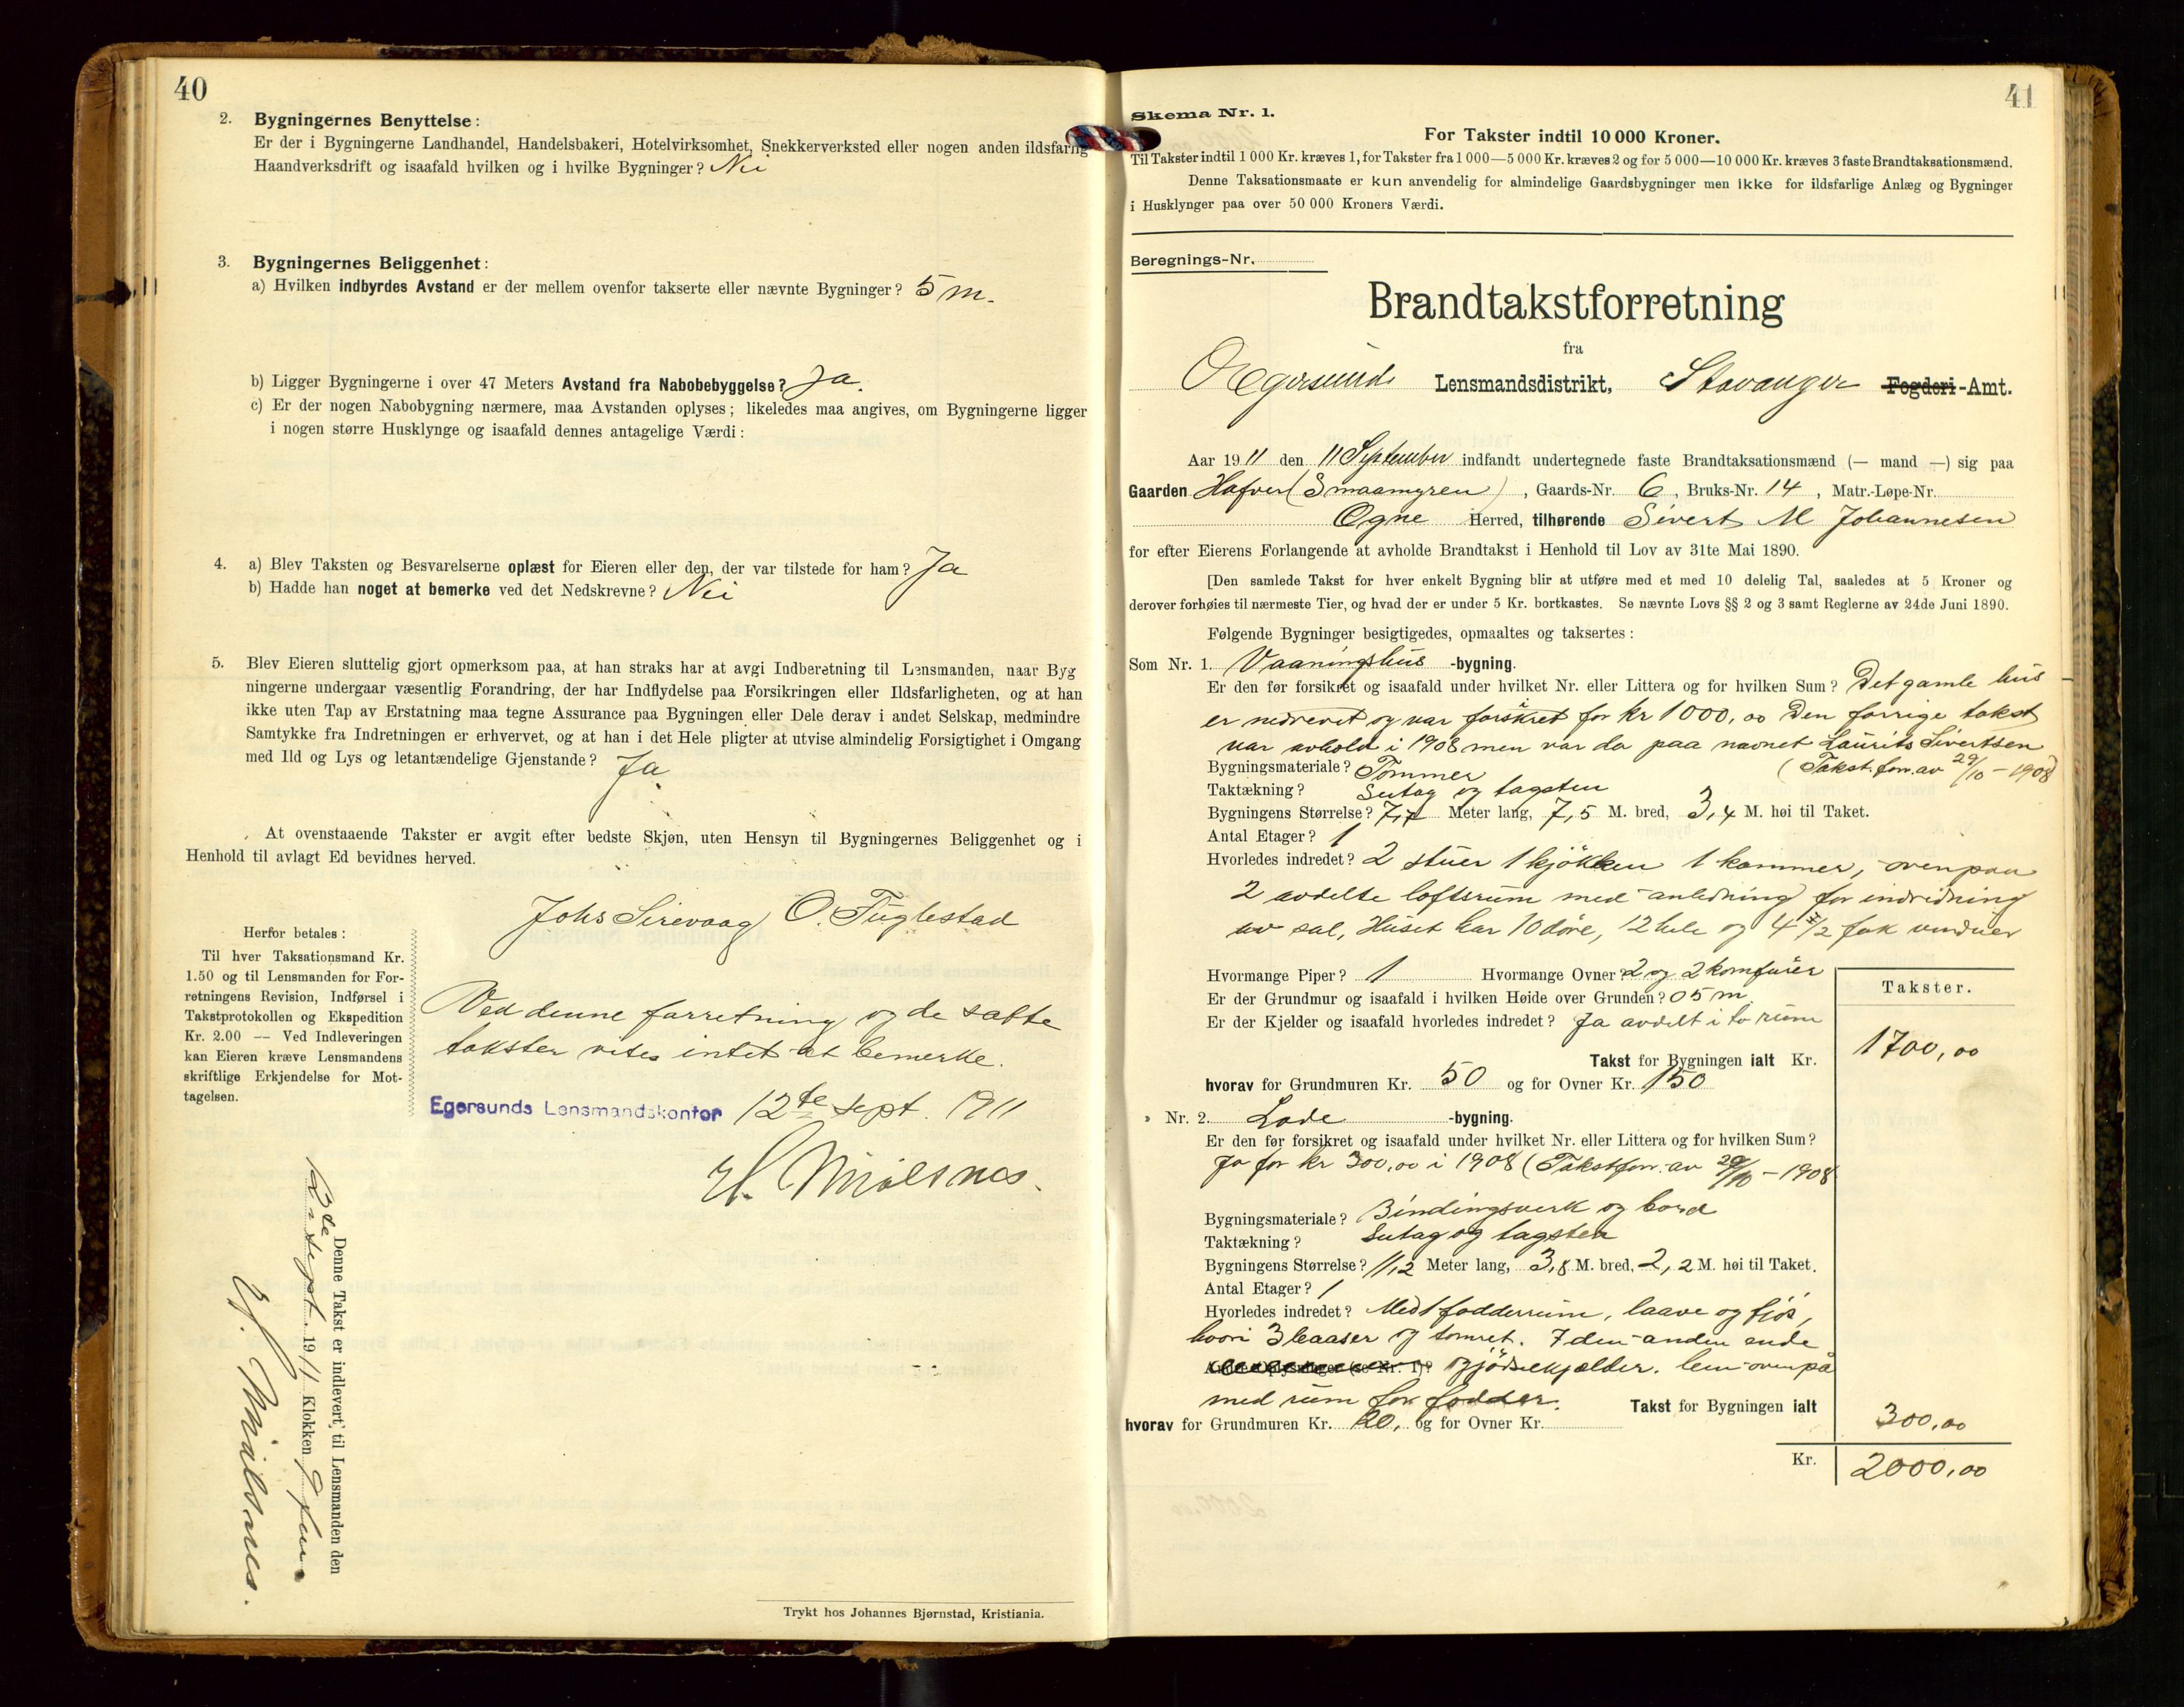 40
2. Bygningernes Benyttelse:
Er der i Bygningerne Landhandel, Handelsbakeri, Hotelvirksomhet, Snekkerverksted eller nogen anden ildsfarlig
Haandverksdrift og isaafald hvilken og i hvilke Bygninger? Nei
3. Bygningernes Beliggenhet:
a) Hvilken indbyrdes Avstand er der mellem ovenfor takserte eller nævnte Bygninger? 5 m.
b) Ligger Bygningerne i over 47 Meters Avstand fra Nabobebyggelse? Ja.
c) Er der nogen Nabobygning nærmere, maa Avstanden oplyses; likeledes maa angives, om Bygningerne ligger
i nogen større Husklynge og isaafald dennes antagelige Værdi:
4. a) Blev Taksten og Besvarelserne oplæst for Eieren eller den, der var tilstede for ham? Ja
b) Hadde han noget at bemerke ved det Nedskrevne? Nei
5. Blev Eieren sluttelig gjort opmerksom paa, at han straks har at avgi Indberetning til Lensmanden, naar Byg
ningerne undergaar væsentlig Forandring, der har Indflydelse paa Forsikringen eller Ildsfarligheten, og at han
ikke uten Tap av Erstatning maa tegne Assurance paa Bygningen eller Dele derav i andet Selskap, medmindre
Samtykke fra Indretningen er erhvervet, og at han i det Hele pligter at utvise almindelig Forsigtighet i Omgang
med Ild og Lys og letantændelige Gjenstande? Ja
At ovenstaaende Takster er avgit efter bedste Skjøn, uten Hensyn til Bygningernes Beliggenhet og i
Henhold til avlagt Ed bevidnes herved.
Johs Sirevaag O. Fuglestad
Herfor betales:
Til hver Taksationsmand Kr.
1.50 og til Lensmanden for For-
retningens Revision, Indførsel i
Takstprotokollen og Ekspedition
Kr. 2.00 — Ved Indleveringen
kan Eieren kræve Lensmandens
skriftlige Erkjendelse for Mot-
tagelsen.
Ved denne forretning og de satte
takster vites intet at bemerke.
Egersunds Lensmandskontor 12te Sept. 1911
H. Mjølsnes.
Denne Takst er indlevert til Lensmanden den
12te Sept. 1911 Klokken 9 fm
H. Mjølsnes.
Trykt hos Johannes Bjørnstad, Kristiania.
41
Skema Nr. 1.
For Takster indtil 10 000 Kroner.
Til Takster indtil 1 000 Kr. kræves 1, for Takster fra 1 000—5 000 Kr. kræves 2 og for 5 000—10 000 Kr. kræves 3 faste Brandtaksationsmænd.
Denne Taksationsmaate er kun anvendelig for almindelige Gaardsbygninger men ikke for ildsfarlige Anlæg og Bygninger
i Husklynger paa over 50 000 Kroners Værdi.
Beregnings-Nr.
Brandtakstforretning
fra
Egersunds Lensmandsdistrikt, Stavanger Fogderi-Amt.
Aar 1911 den 11 September indfandt undertegnede faste Brandtaksationsmænd (— mand —) sig paa
Gaarden Hafver (Smaamyren), Gaards-Nr. 6, Bruks-Nr. 14, Matr.-Løpe-Nr.
Ogne Herred, tilhørende Sivert M Johannesen
for efter Eierens Forlangende at avholde Brandtakst i Henhold til Lov av 31te Mai 1890.
[Den samlede Takst for hver enkelt Bygning blir at utføre med et med 10 delelig Tal, saaledes at 5 Kroner og
derover forhøies til nærmeste Tier, og hvad der er under 5 Kr. bortkastes. Se nævnte Lovs §§ 2 og 3 samt Reglerne av 24de Juni 1890.
Følgende Bygninger besigtigedes, opmaaltes og taksertes:
Som Nr. 1. Vaaningshus -bygning.
Er den før forsikret og isaafald under hvilket Nr. eller Littera og for hvilken Sum? Det gamle hus
er nedrevet og var forsikret for kr 1000,00 Den forrige takst
var avhold i 1908 men var da paa navnet Laurits Sivertsen
(Takst.forr. av 29/10 - 1908)
Bygningsmateriale? Tømmer
Taktækning? Sutag og tagsten
Bygningens Størrelse? 7,7 Meter lang, 7,5 M. bred, 3,4 M. høi til Taket.
Antal Etager? 1
Hvorledes indredet? 2 stuer 1 kjøkken 1 kammer, ovenpaa
2 avdelte loftsrum med anledning for indredning
av sal, Huset har 10 döre, 12 hele og 4 1/2 fak vinduer
Hvormange Piper? 1 Hvormange Ovner? 2 og 2 komfurer
Er der Grundmur og isaafald i hvilken Høide over Grunden? 05 m.
Er der Kjelder og isaafald hvorledes indredet? Ja avdelt i to rum
Takster.
Takst for Bygningen ialt Kr. 1700,00
hvorav for Grundmuren Kr. 50 og for Ovner Kr. 150
» Nr. 2. Lade -bygning.
Er den før forsikret og isaafald under hvilket Nr. eller Littera og for hvilken Sum?
Ja for kr 300,00 i 1908 (Takstforr. av 29/10 - 1908
Bygningsmateriale? Bindingsverk og bord
Taktækning? Sutag og tagsten
Bygningens Størrelse? 11,2 Meter lang, 3,8 M. bred, 2,2 M. høi til Taket.
Antal Etager? 1
Hvorledes indredet? Med 1 fodderrum, laave og fjös,
hvori 3 baaser og tomret. I den anden ende
gjödselkjælder. lem ovenpå
med rum for fodder. Takst for Bygningen ialt 300,00
hvorav for Grundmuren Kr. 20, og for Ovner Kr.
Kr. 2000,00